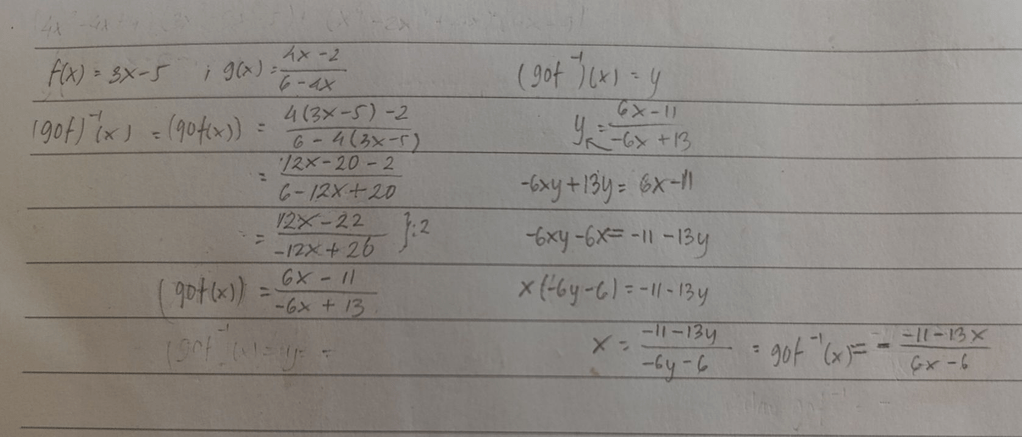 f(x) = 3x-5 ; g(x) = (4x-2)/(6-4x)
(gof)⁻¹(x) = (gof(x)) = (4(3x-5)-2)/(6-4(3x-5))
= (12x-20-2)/(6-12x+20)
= (12x-22)/(-12x+26) } :2
(gof(x)) = (6x-11)/(-6x+13)
(gof⁻¹)(x) = y
y = (6x-11)/(-6x+13)
-6xy+13y = 6x-11
-6xy-6x = -11-13y
x(-6y-6) = -11-13y
x = (-11-13y)/(-6y-6) = gof⁻¹(x) = - (-11-13x)/(6x-6)